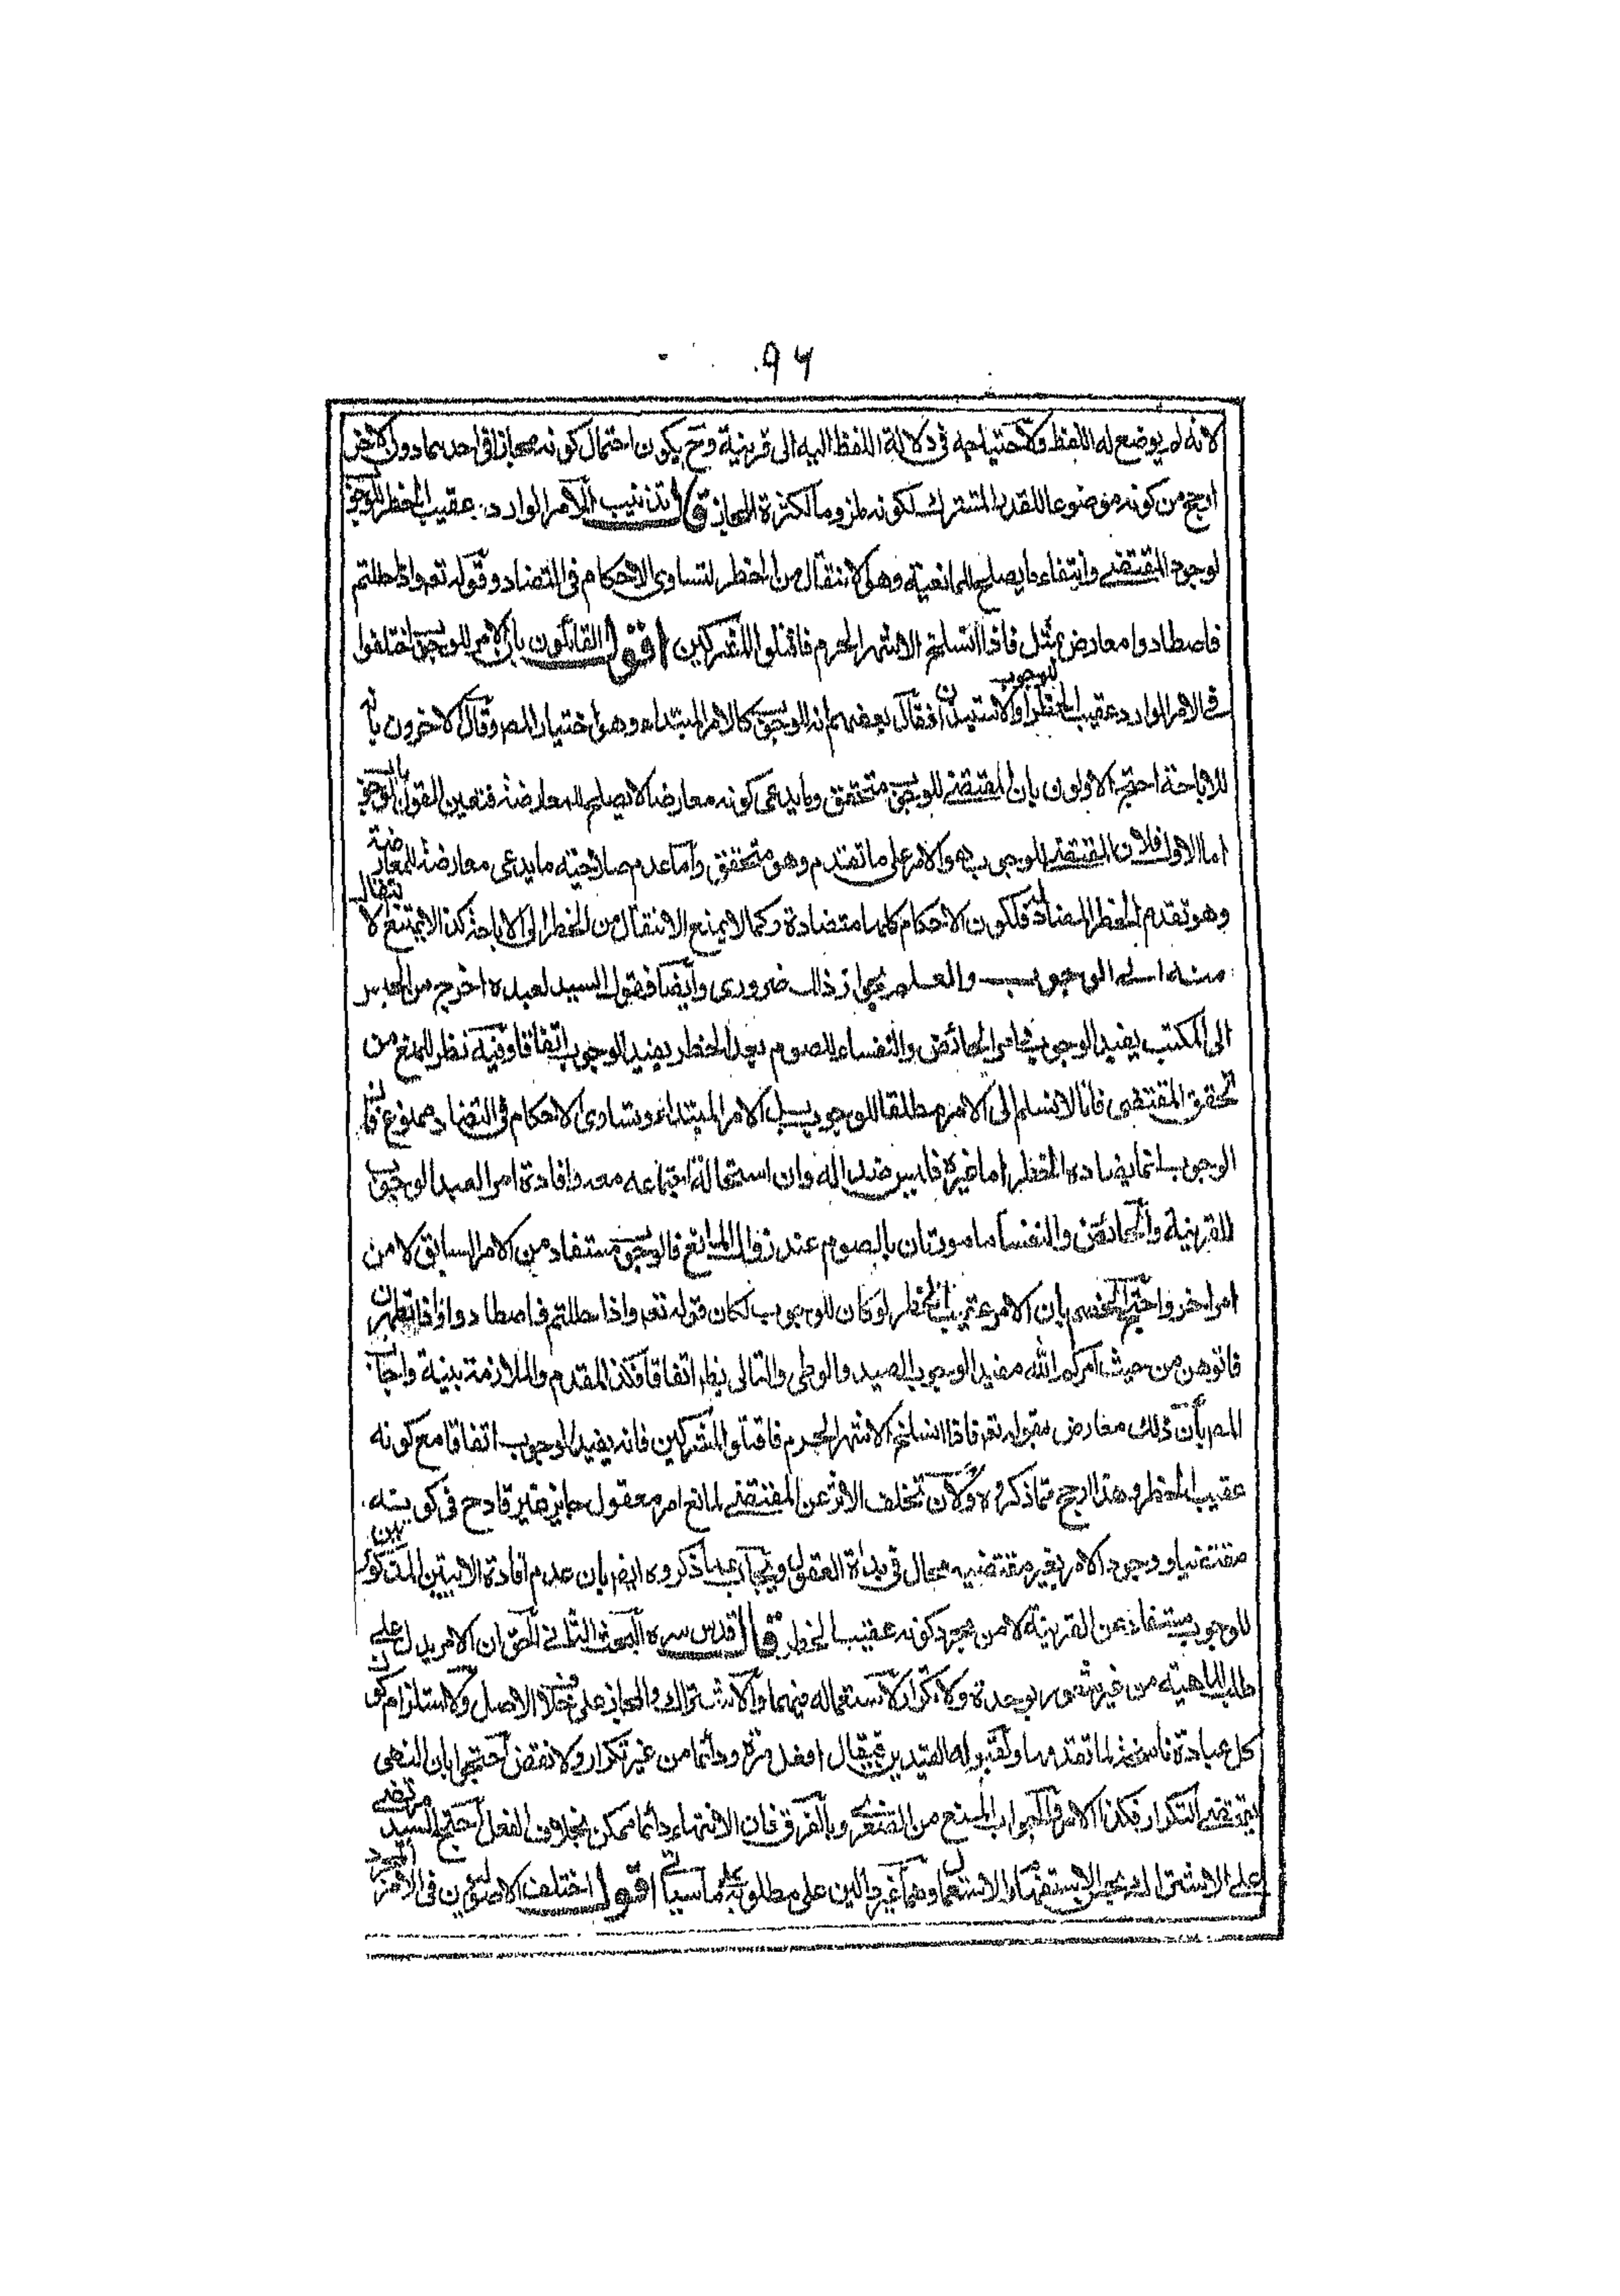 ٩٦
لانه لم يوضع له اللفظ ولاحتياجه في دلالة اللفظ اليه الى قرينة وح يكون احتمال كونه مجازا في احدهما دون الاخر
ارجح من كونه موضوعا للقدر المشترك لكونه ملزوما لكثرة المجاز قال تذنيب الامر الوارد عقيب الحظر للوجوب
لوجود المقتضي وانتفاء ما يصلح للمانعية وهو الانتقال من الحظر لتساوي الاحكام في التضاد وقوله تعه واذا حللتم
فاصطادوا معارض بمثل فاذا انسلخ الاشهر الحرم فاقتلوا المشركين اقول القائلون بان الامر للوجوب اختلفوا
في الامر الوارد عقيب الحظر او الاستيذان فقال بعضهم انه للوجوب كالامر المبتداء وهو اختيار المصر وقال الاخرون بانه
للاباحة احتج الاولون بان المقتضي للوجوب متحقق وما يدعى كونه معارضا لا يصلح للمعارضة فتعين القول بالوجوب
اما الاول فلان المقتضي للوجوب هو الامر على ما تقدم وهو متحقق واما عدم صلاحية ما يدعى معارضة للمعارضة
وهو تقدم الحظر المضاد فلكون الاحكام كلها متضادة وكما لا يمنع الانتقال من الحظر الى الاباحة كذا لا يمتنع الانتقال
منه الى الوجوب والعلم بجواز ذلك ضروري وايضا فقول السيد لعبده اخرج من الحبس
الى المكتب يفيد الوجوب وامر الحائض والنفساء بالصوم بعد الحظر يفيد الوجوب اتفاقا وفيه نظر للمنع من
تحقق المقتضى فانا لا نسلم ان الامر مطلقا للوجوب بل الامر المبتداء وتساوي الاحكام في التضاد ممنوع فان
الوجوب انما يضاده الحظر اما غيره فليس ضدا له وان استحال اجتماعه معه وافادة امر العبد الوجوب
للقرينة والحائض والنفساء مامورتان بالصوم عند زوال المانع فالوجوب مستفاد من الامر السابق لا من
امر اخر واحتج الخصم بان الامر عقيب الحظر لو كان للوجوب لكان قوله تعه واذا حللتم فاصطادوا واذا تطهرن
فاتوهن من حيث امركم الله مفيدا لوجوب الصيد والوطي والتالي بطم اتفاقا فكذا المقدم والملازمة بينة واجاب
المصر بان ذلك معارض بقوله تعه فاذا انسلخ الاشهر الحرم فاقتلوا المشركين فانه يفيد الوجوب اتفاقا مع كونه
عقيب الحظر وهذا ارجح مما ذكروه ولان تخلف الاثر عن المقتضي لمانع امر معقول جايز غير قادح في كونه
مقتضيا ووجود الامر بغير مقتضيه محال في بداة العقول ويجاب عما ذكروه ايضا بان عدم افادة الايتين المذكورتين
للوجوب مستفاد من القرينة لا من مجرد كونه عقيب الحظر قال قدس سره البحث الثاني الحق ان الامر يدل على
طلب الماهية من غير شعور بوحدة ولا تكرار لاستعماله فيهما والاشتراك والمجاز على خلاف الاصل ولاستلزام كون
كل عبادة ناسخة لما تقدمها ولقبوله التقييد بهما فيقال افعل مرة ودائما من غير تكرار ولا نقض احتجوا بان النهى
يقتضي التكرار فكذا الامر والجواب المنع من الصغرى وبالفرق فان الانتهاء دائما ممكن بخلاف الفعل احتج السيد المرتضى
على الاشتراك بحسن الاستفهام والاستعمال وهما غير دالين على مطلوبه على ما سياتي اقول اختلف الاصوليون في الامر المجرد